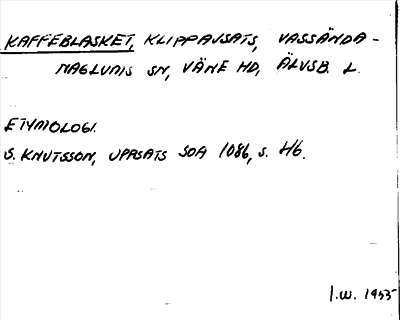 KAFFEBLASKET, KLIPPAVSATS, VASSÄNDA-
NAGLUMS SN, VÄNE HD, ÄLVSB. L.
ETYMOLOGI.
S. KNUTSSON, UPPSATS SOA 1086, S. 46.
I.W. 1955